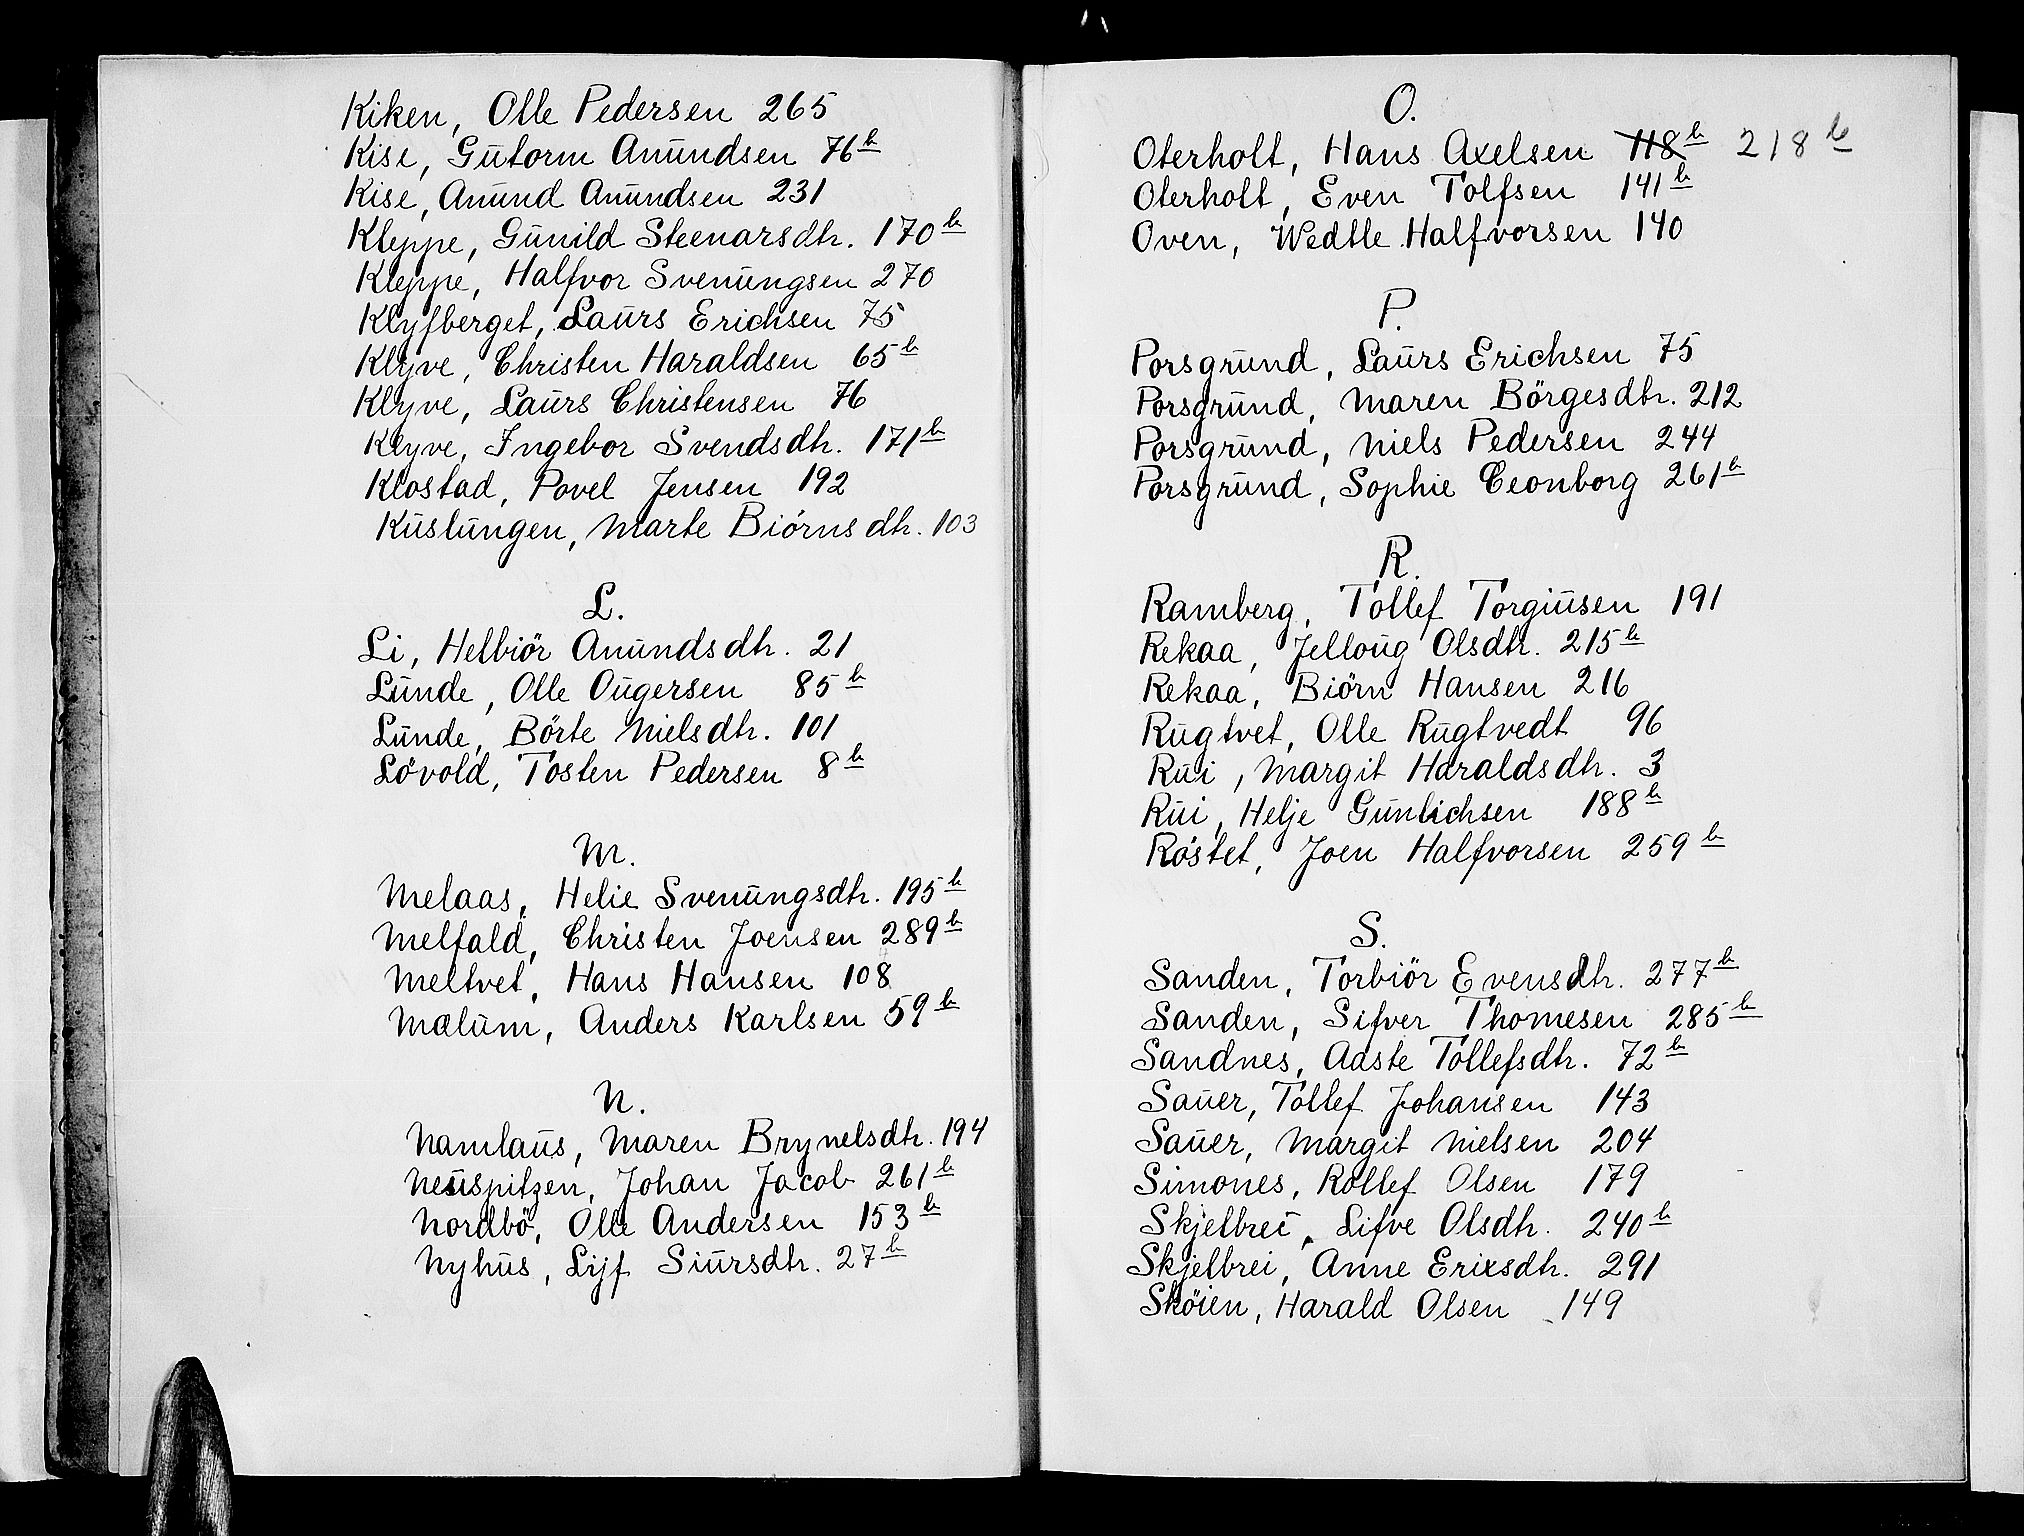 Kiken, Olle Pedersen 265
Kise, Gūtorm Anūndsen 76b
Kise, Anūnd Anūndsen 231
Kleppe, Gūnild Steenarsdtr. 170b
Kleppe, Halfvor Svenūngsen 270
Klyfberget, Laūrs Erichsen 75
Klyve, Christen Haraldsen 65b
Klyve, Laūrs Christensen 76
Klyve, Ingebor Svendsdtr. 171b
Klostad, Povel Jensen 192
Kūslūngen, Marte Biörnsdtr. 103
L.
Li, Helbiör Anūndsdtr. 21
Lūnde, Olle Oūgersen 85b
Lūnde, Börte Nielsdtr. 101
Lövold, Tosten Pedersen 8b
M.
Melaas, Helie Svenūngsdtr. 195b
Melfald, Christen Joensen 289b
Meltvet, Hans Hansen 108
Mælūm, Anders Karlsen 59b
N.
Namlaūs, Maren Brynelsdtr. 194
Neūspitzen, Johan Jacob 261b
Nordbö, Olle Andersen 153b
Nyhūs, Lijf Siūrsdtr. 27b
O.
Oterholt, Hans Axelsen 118b 218b
Oterholt, Even Tolfsen 141b
Oven, Wedtle Halfvorsen 140
P.
Porsgrūnd, Laūrs Erichsen 75
Porsgrūnd, Maren Börgesdtr. 212
Porsgrūnd, Niels Pedersen 244
Porsgrūnd, Sophie Ceonborg 261b
R.
Ramberg, Tollef Torgiūsen 191
Rekaa, Jelloūg Olsdtr. 215b
Rekaa, Biörn Hansen 216
Rūgtvet, Olle Rūgtvedt 96
Rūi, Margit Haraldsdtr. 3
Rūi, Helje Gūnlichsen 188b
Röstet, Joen Halfvorsen 259b
S.
Sanden, Torbiör Evensdtr. 277b
Sanden, Sifver Thomesen 285b
Sandnes, Aaste Tollefsdtr. 72b
Saūer, Tollef Johansen 143
Saūer, Margit Nielsen 204
Simones, Rollef Olsen 179
Skjelbrei, Lifve Olsdtr. 240b
Skjelbrei, Anne Erixsdtr. 291
Sköien, Harald Olsen 149